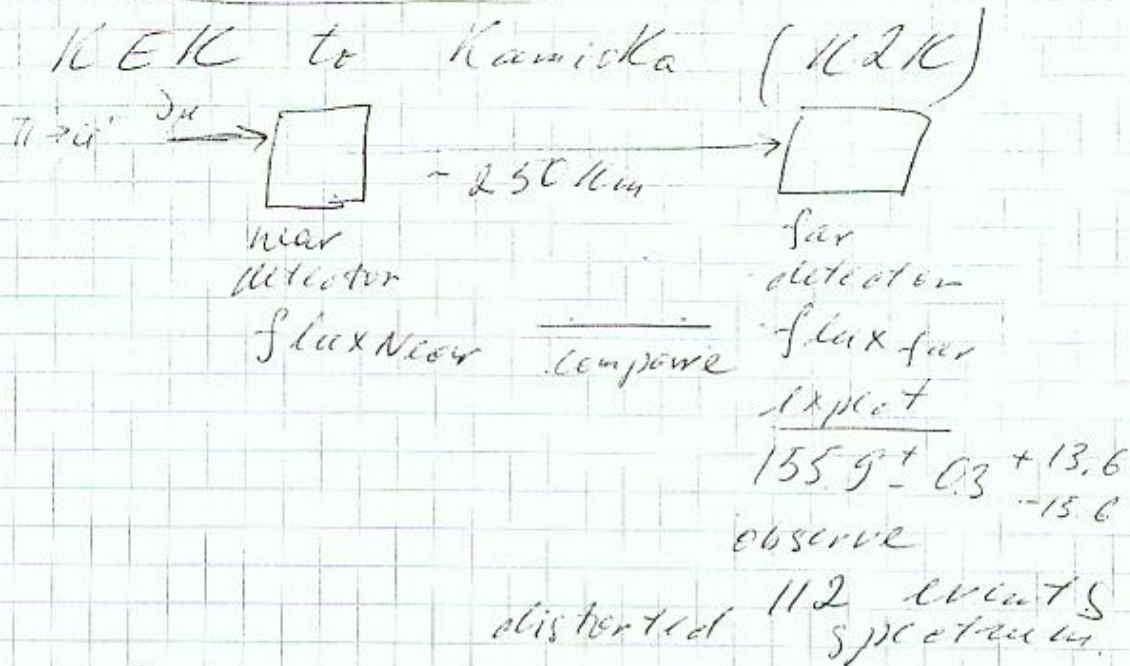 KEK to Kamioka (K2K)
π→μ νμ
~250 km
near
detector
flux Near
compare
far
detector
flux far
expect
155.9 ± 0.3 +13.6 -15.6
observe
112 events
distorted spectrum.